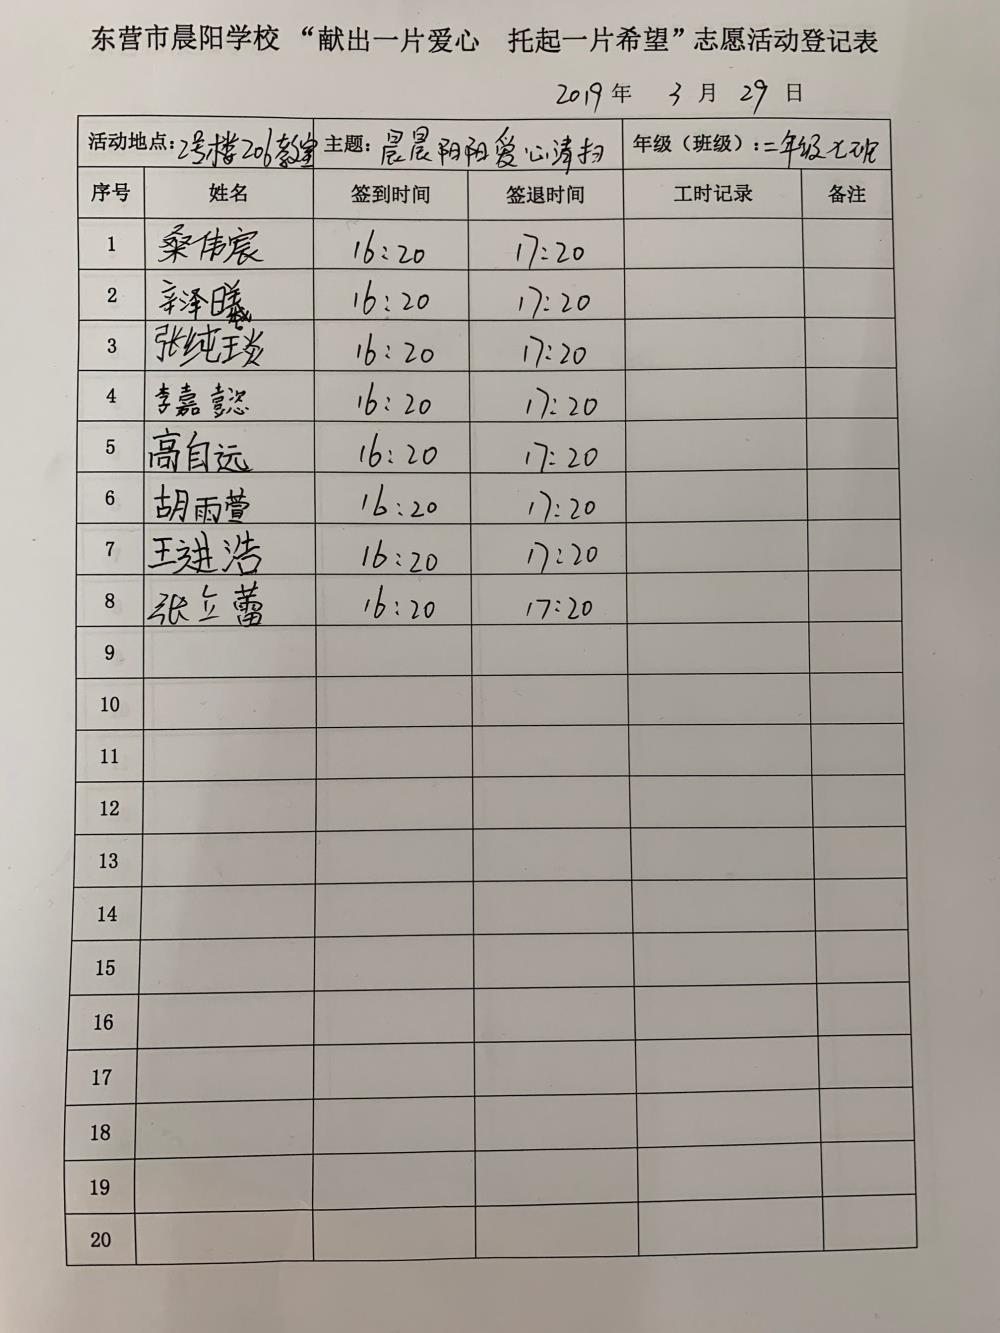 东营市晨阳学校 “献出一片爱心 托起一片希望”志愿活动登记表
2019年 3月29日
活动地点：2号楼206教室 主题：晨晨阳阳爱心清扫 年级（班级）：二年级七班
序号 姓名 签到时间 签退时间 工时记录 备注
1 桑伟宸 16:20 17:20
2 辛泽曦 16:20 17:20
3 张纯琰 16:20 17:20
4 李嘉懿 16:20 17:20
5 高自远 16:20 17:20
6 胡雨萱 16:20 17:20
7 王进浩 16:20 17:20
8 张立蕾 16:20 17:20
9
10
11
12
13
14
15
16
17
18
19
20